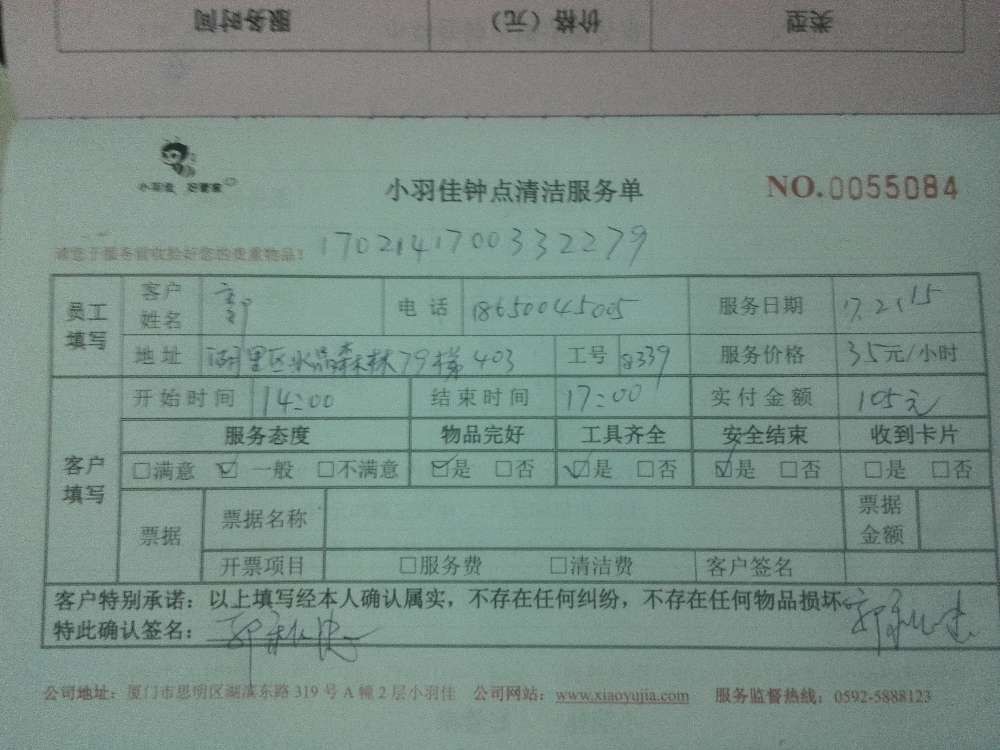 服务时间 价格（元） 类型
小羽佳 好管家
小羽佳钟点清洁服务单 NO.0055084
请您于服务前收捡好您的贵重物品！ 1702141700332279
员工填写 客户姓名 电话 18650045005 服务日期 17.2.15
地址 湖里区水晶森林79梯403 工号 服务价格 35元/小时
客户填写 开始时间 14:00 结束时间 17:00 实付金额 105元
服务态度 物品完好 工具齐全 安全结束 收到卡片
□满意 ☑一般 □不满意 ☑是 □否 ☑是 □否 ☑是 □否 □是 □否
票据 票据名称 票据金额
开票项目 □服务费 □清洁费 客户签名
客户特别承诺：以上填写经本人确认属实，不存在任何纠纷，不存在任何物品损坏。
特此确认签名：
公司地址：厦门市思明区湖滨东路319号A幢2层小羽佳 公司网站：www.xiaoyujia.com 服务监督热线：0592-5888123